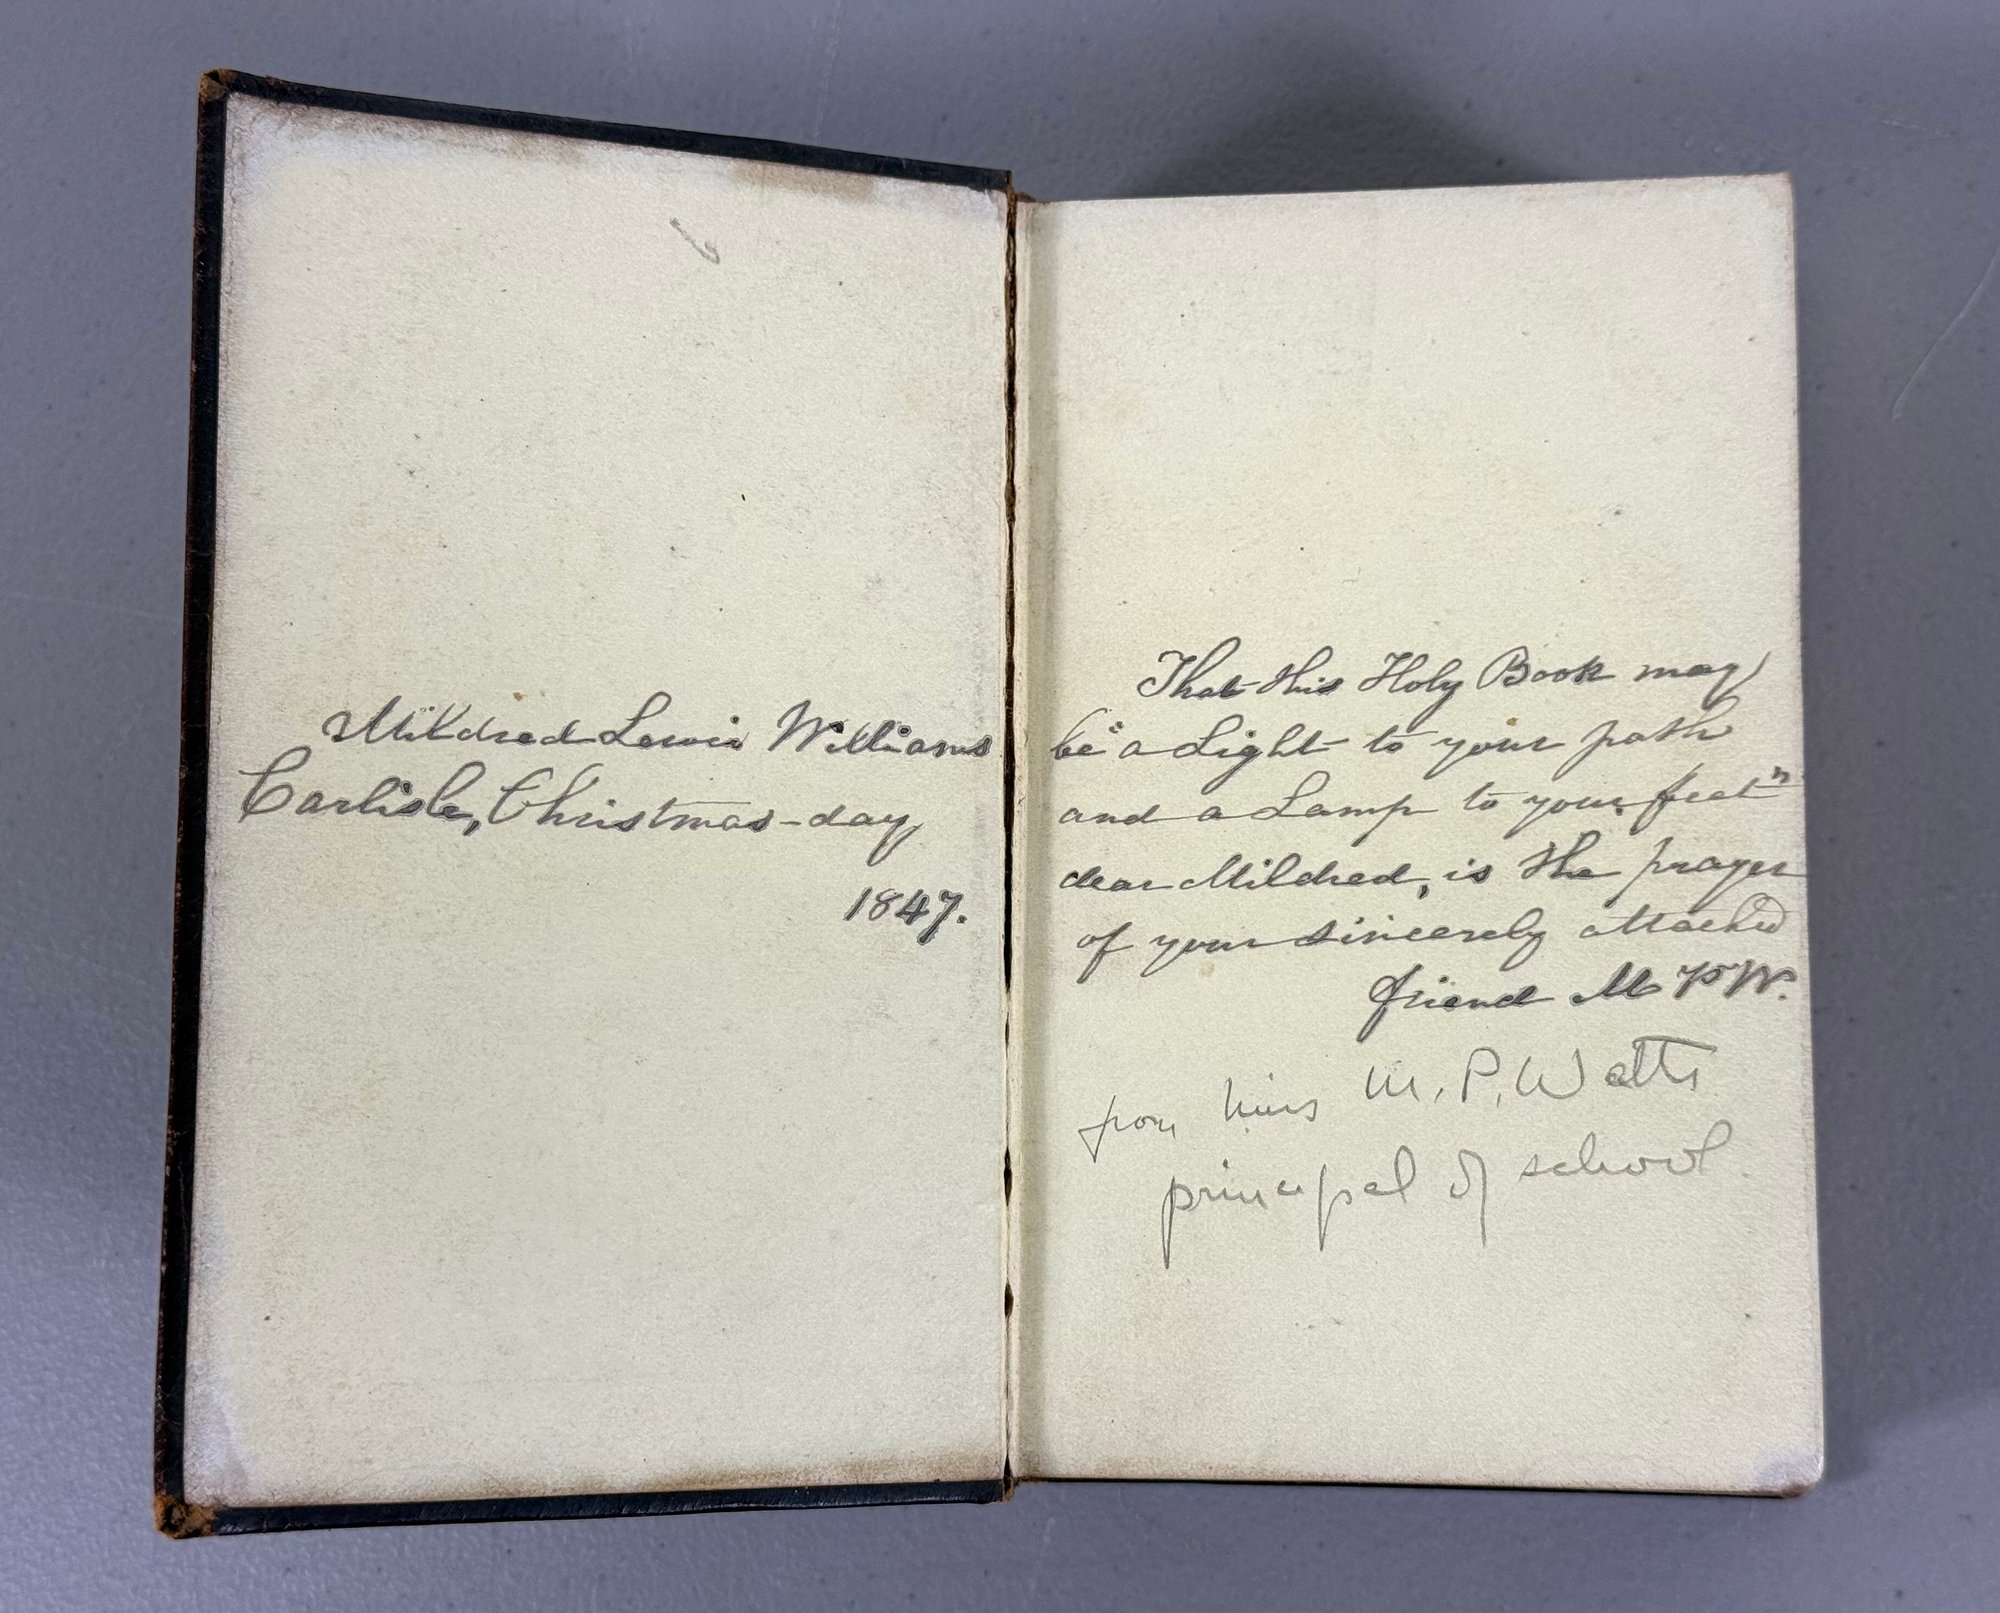 Mildred Lewis Williams
Carlisle, Christmas-day
1847.
That this Holy Book may
be "a Light to your path
and a Lamp to your feet"
dear Mildred, is the prayer
of your sincerely attached
friend M P W.
from Miss M. P. Watts
principal of school